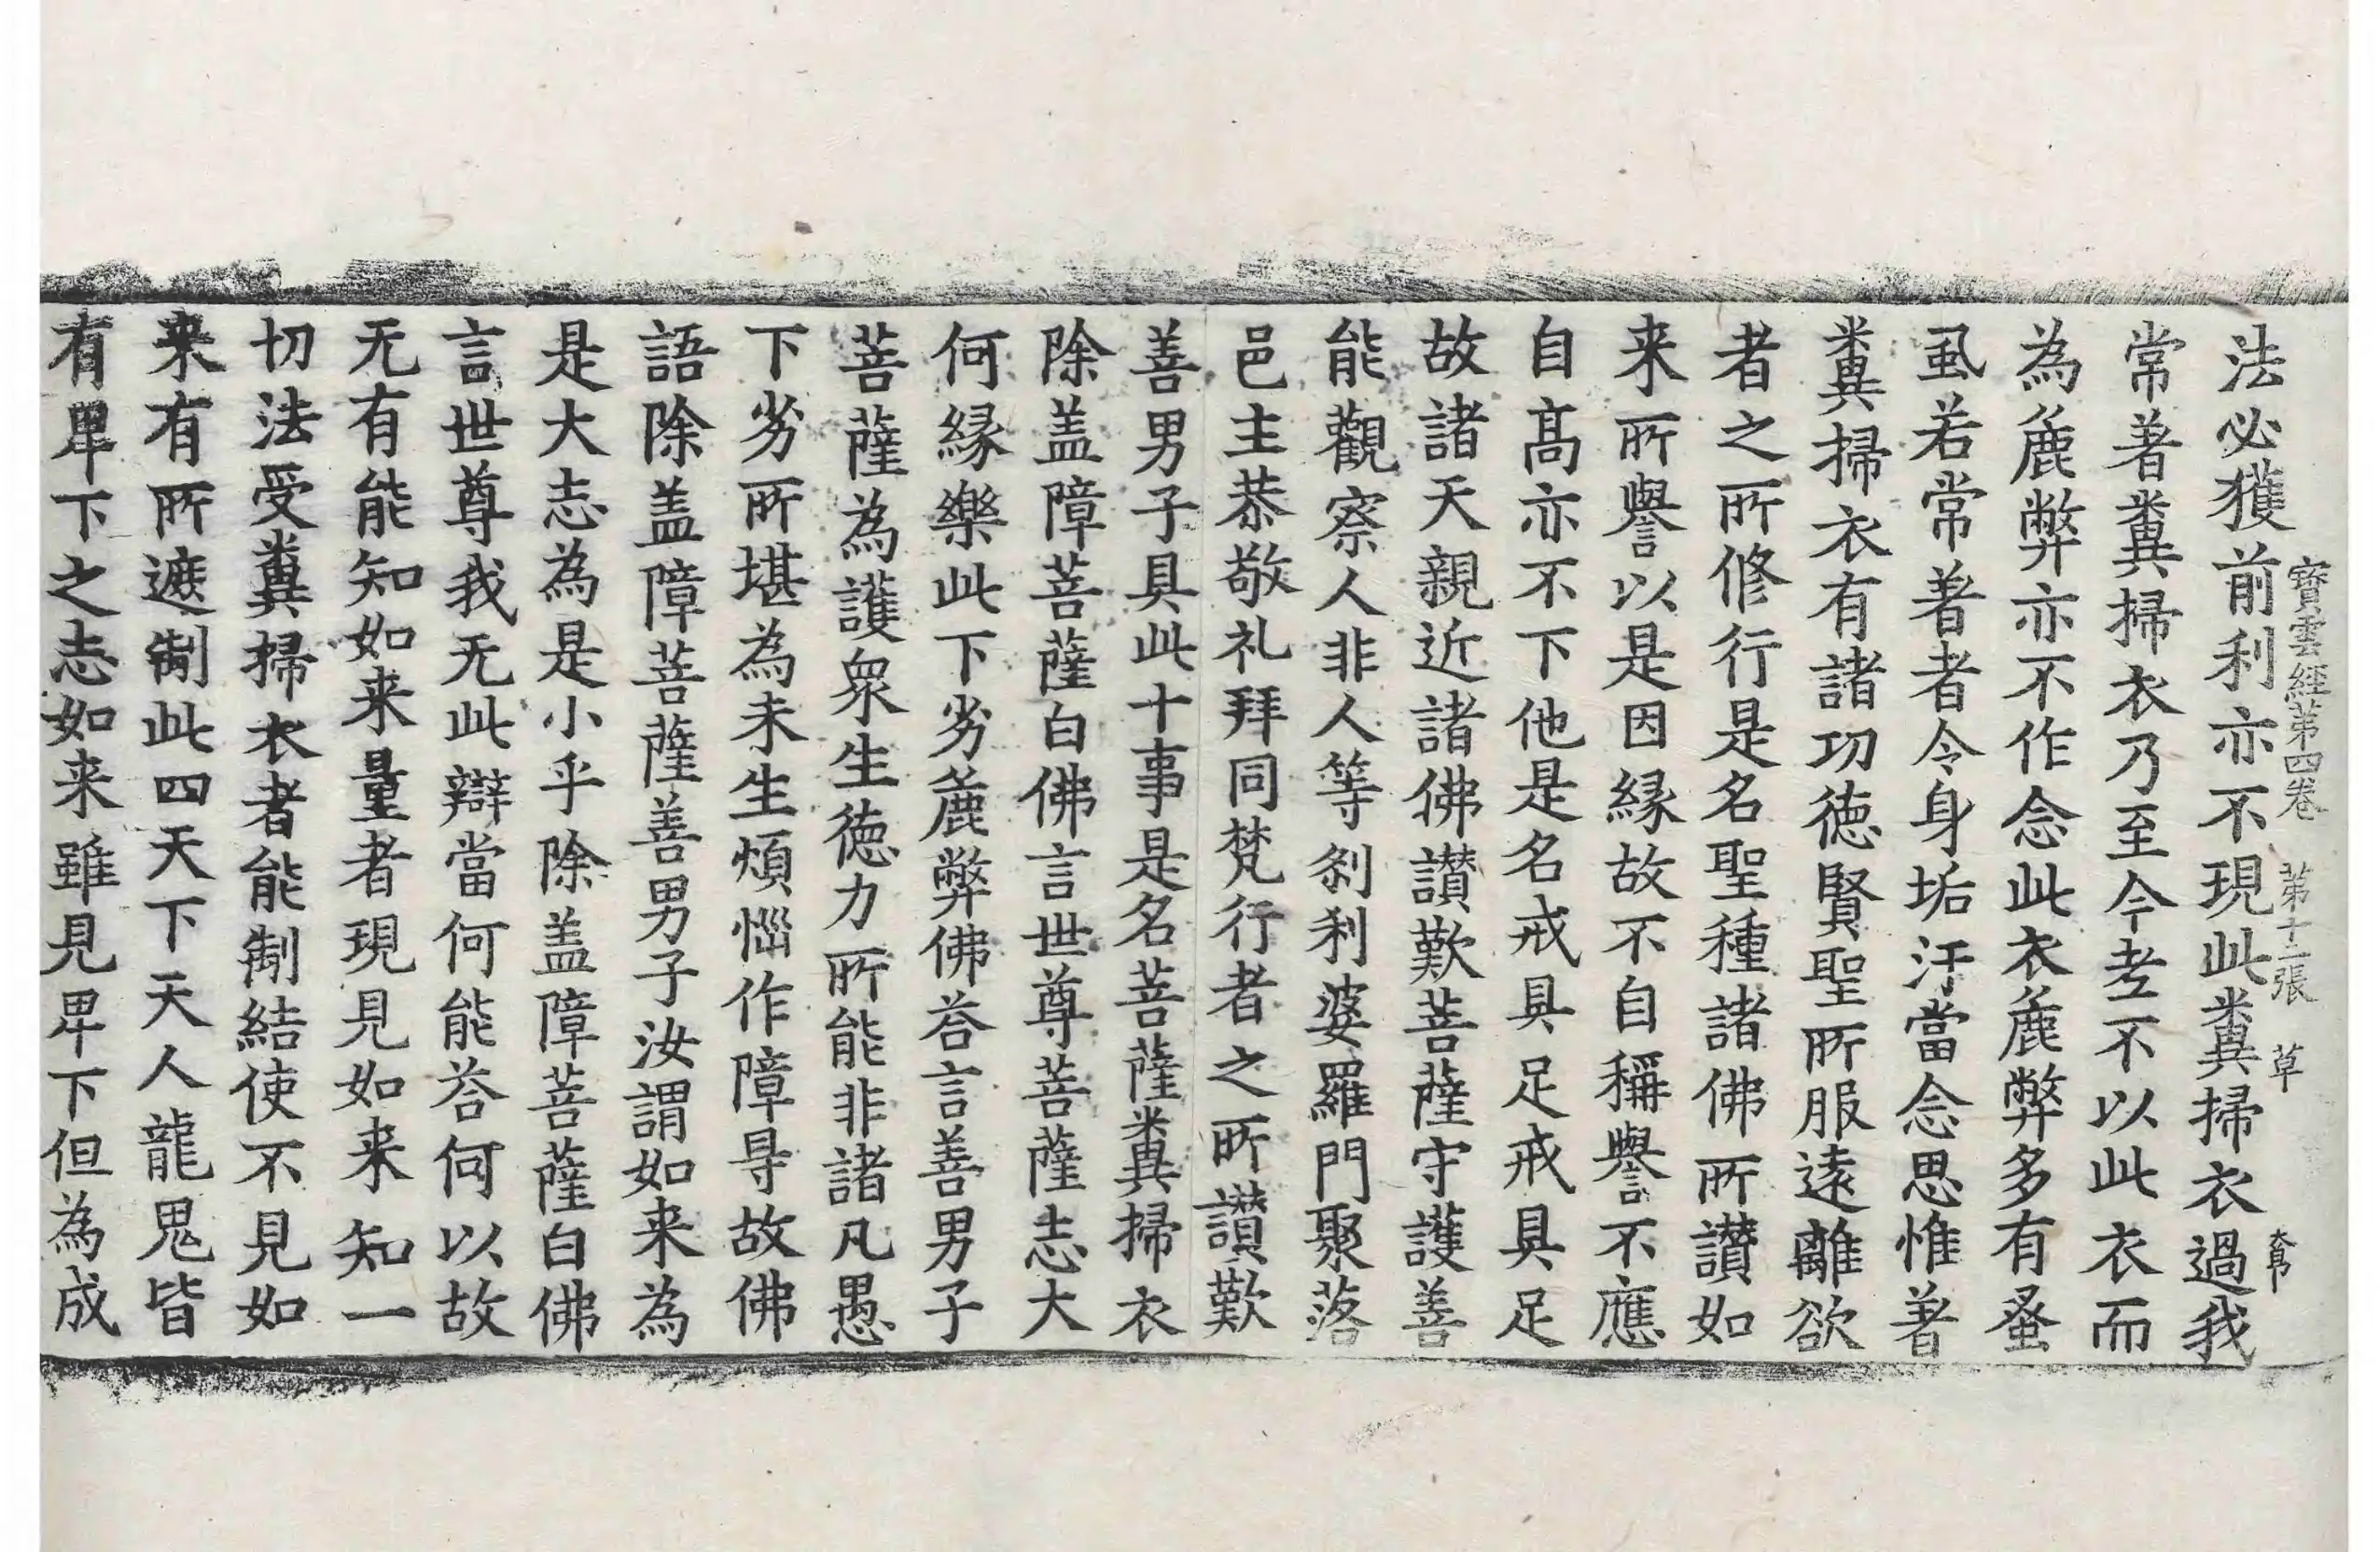 寶雲經第四卷 第十二張 草
法必獲前利亦不現此糞掃衣過我
常著糞掃衣乃至今老不以此衣而
為麁弊亦不作念此衣麁弊多有蚤
虱若常著者令身垢汙當念思惟著
糞掃衣有諸功德賢聖所服遠離欲
者之所修行是名聖種諸佛所讃如
来所譽以是因縁故不自稱譽不應
自髙亦不下他是名戒具足戒具足
故諸天親近諸佛讃歎菩薩守護善
能觀察人非人等剎利婆羅門聚落
邑主恭敬礼拜同梵行者之所讃歎
善男子具此十事是名菩薩糞掃衣
除盖障菩薩白佛言世尊菩薩志大
何縁樂此下劣麁弊佛荅言善男子
菩薩為護衆生德力所能非諸凡愚
下劣所堪為未生煩惱作障㝵故佛
語除盖障菩薩善男子汝謂如来為
是大志為是小乎除盖障菩薩白佛
言世尊我无此辯當何能荅何以故
无有能知如来量者現見如来知一
切法受糞掃衣者能制結使不見如
来有所遮制此四天下天人龍鬼皆
有卑下之志如来雖見卑下但為成